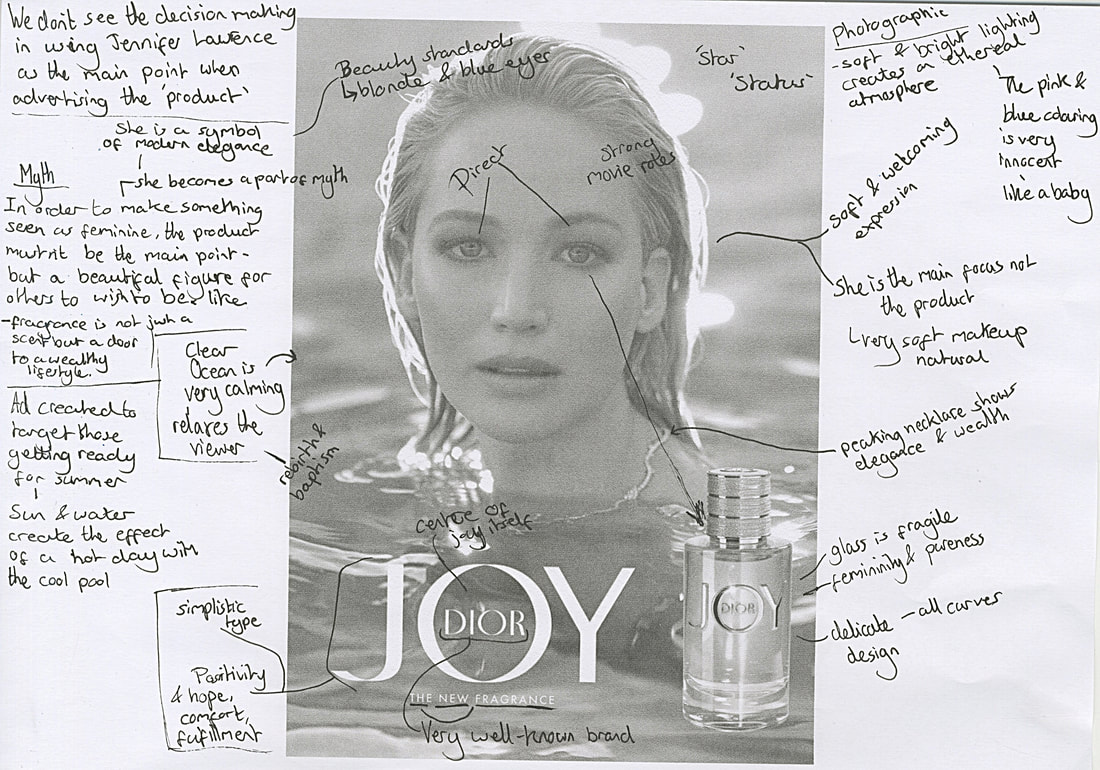 We don't see the decision making
in using Jennifer Lawrence
as the main point when
advertising the 'product'
She is a symbol
of modern elegance
Myth
she becomes a part of myth
In order to make something
seen as feminine, the product
mustn't be the main point -
but a beautiful figure for
others to wish to be like
-fragrance is not just a
scent but a door
to a wealthy
lifestyle.
Clear
Ocean is
very calming
relaxes the
viewer
Ad created to
target those
getting ready
for summer
Sun & water
create the effect
of a hot day with
the cool pool
simplistic
type
Positivity
& hope,
comfort,
fulfillment
Beauty standards
blonde & blue eyes
'Star'
'Status'
Direct
Strong
movie roles
rebirth &
baptism
centre of
joy itself
JOY
DIOR
THE NEW FRAGRANCE
Very well-known brand
JOY
DIOR
Photographic
-soft & bright lighting
creates an ethereal
atmosphere
The pink &
blue colouring
is very
innocent
like a baby
soft & welcoming
expression
She is the main focus not
the product
very soft makeup
natural
peaking necklace shows
elegance & wealth
glass is fragile
femininity & pureness
delicate - all curves
design